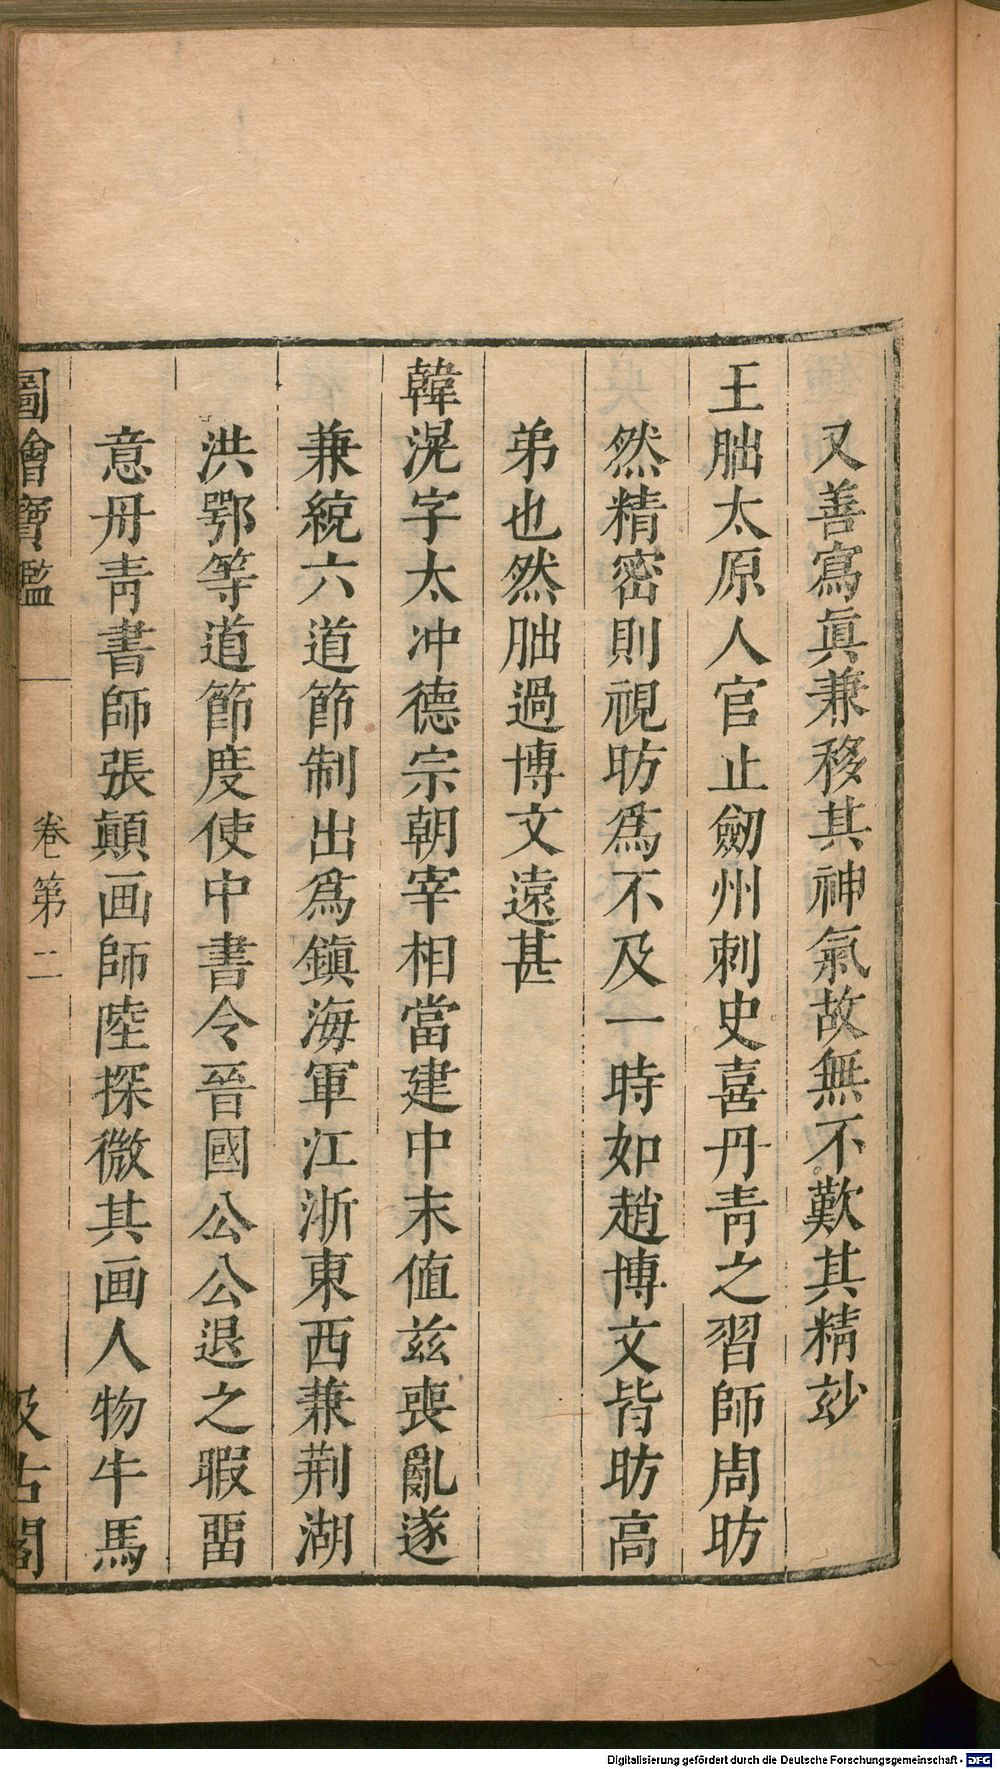 又善寫眞兼移其神氣故無不歎其精玅
王朏太原人官止劒州刺史喜丹靑之習師周昉
然精密則視昉爲不及一時如趙博文皆昉高
弟也然朏過博文遠甚
韓滉字太冲德宗朝宰相當建中末値兹喪亂遂
兼統六道節制出爲鎭海軍江浙東西兼荆湖
洪鄂等道節度使中書令晉國公公退之暇畱
意丹靑書師張顚画師陸探微其画人物牛馬
圖繪寶鑑 卷第二 汲古閣
Digitalisierung gefördert durch die Deutsche Forschungsgemeinschaft - DFG